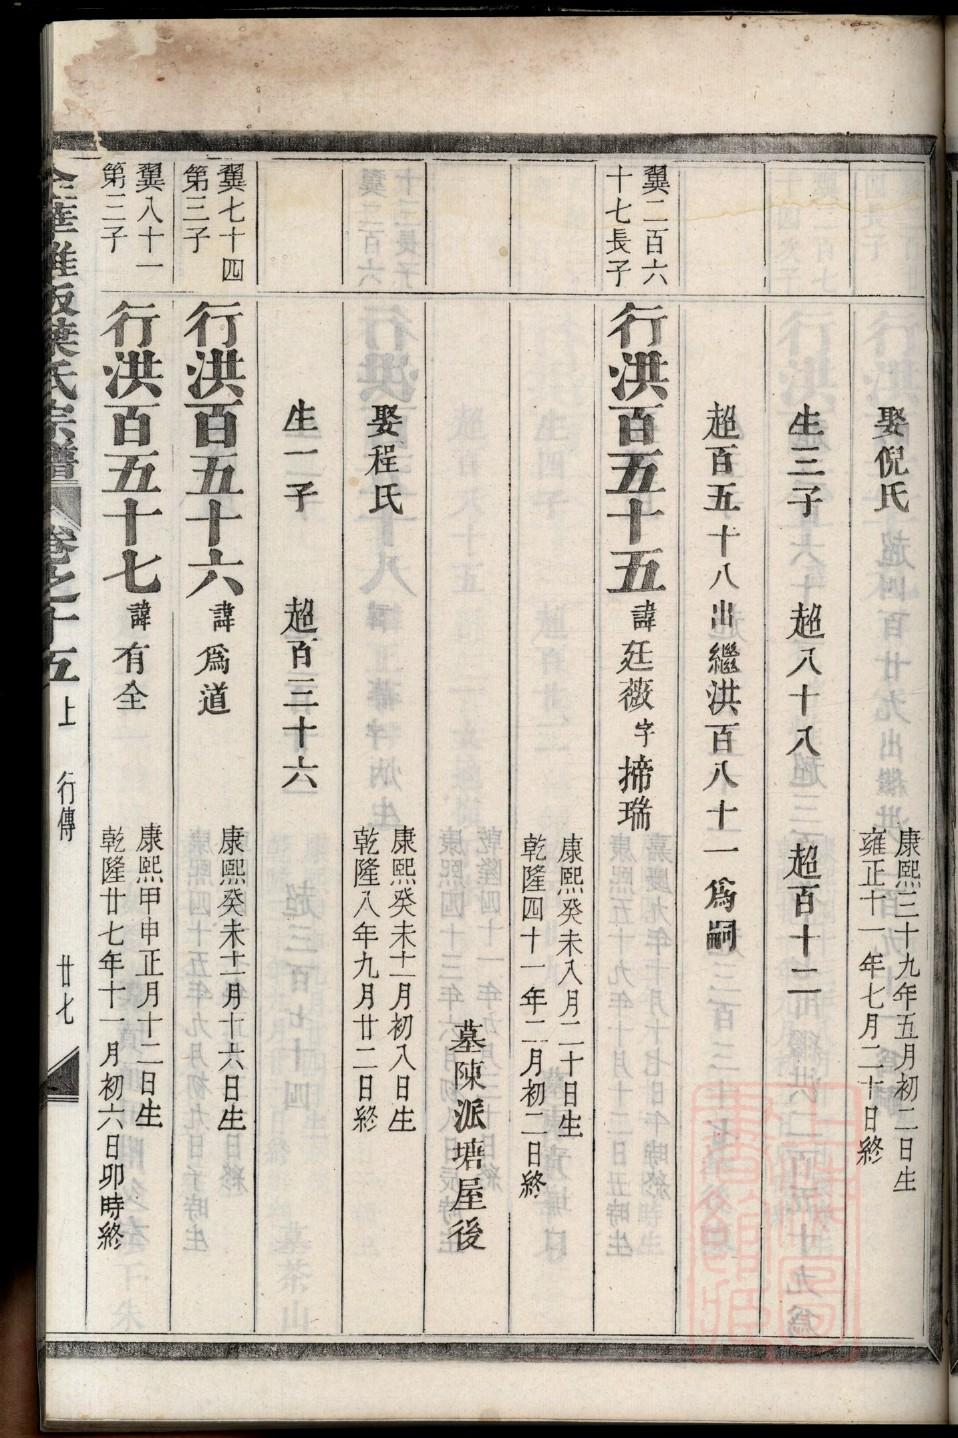 娶倪氏
康熙三十九年五月初二日生
雍正十一年七月二十日終
生三子 超八十八 超百十二
超百五十八出繼洪百八十一爲嗣
翼二百六
十七長子
行洪百五十五 諱廷薇 字揥瑞
康熙癸未八月二十日生
乾隆四十一年二月初二日終
墓陳派塘屋後
娶程氏
康熙癸未十一月初八日生
乾隆八年九月廿二日終
生一子 超百三十六
翼七十四
第三子
行洪百五十六 諱爲道
康熙癸未十一月十六日生
翼八十一
第三子
行洪百五十七 諱有全
康熙甲申正月十二日生
乾隆廿七年十一月初六日卯時終
葉氏宗譜 卷之十五 上 行傳 廿七